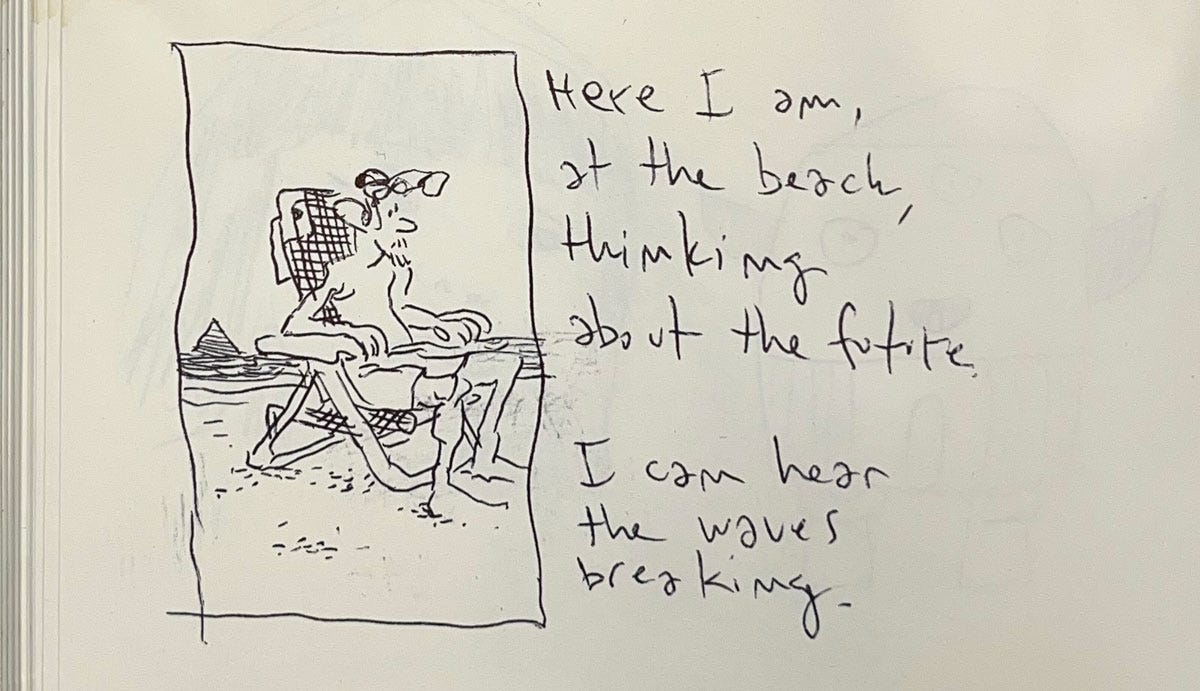 Here I am,
at the beach,
thinking
about the future.
I can hear
the waves
breaking.